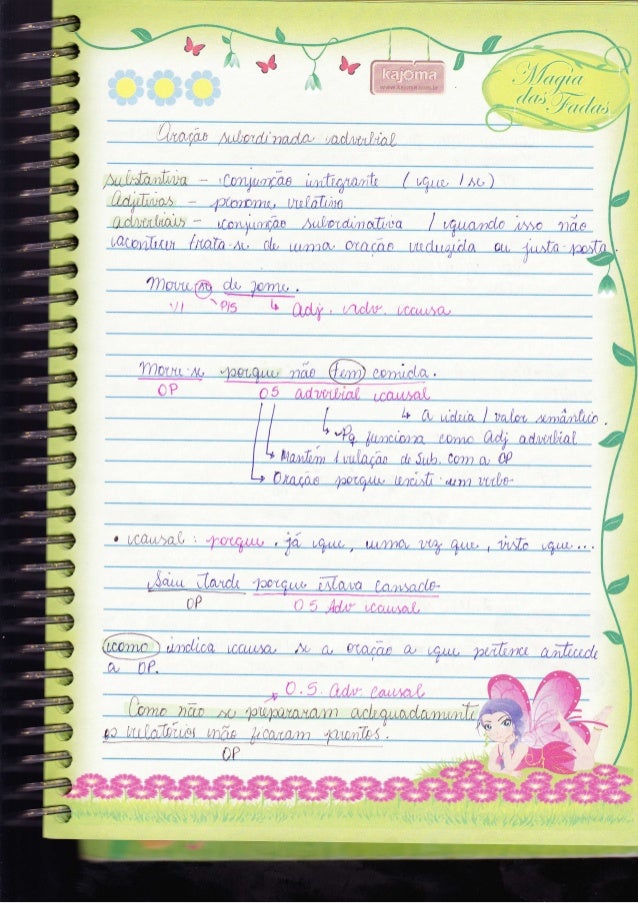 kajoma
www.kajoma.com.br
Magia
das Fadas
Oração subordinada adverbial
substantiva - conjunção integrante ( que / se )
adjetivas - pronome relativo
adverbiais - conjunção subordinativa / quando isso não
acontecer trata-se de uma oração reduzida ou justa-posta.
Morre se de fome.
VI PIS ↳ Adj. adv. causa
Morre-se porque não tem comida.
OP OS adverbial causal
↳ a ideia / valor semântico.
↳ Pq funciona como adj adverbial
↳ Mantém 1 relação de sub. com a OP
↳ Oração porque existe um verbo
• causal : porque, já que, uma vez que, visto que...
Saiu tarde porque estava cansado
OP O S Adv causal
como indica causa se a oração a que pertence antecede
a OP.
O.S. adv. causal
Como não se prepararam adequadamente
os relatórios não ficaram prontos.
OP